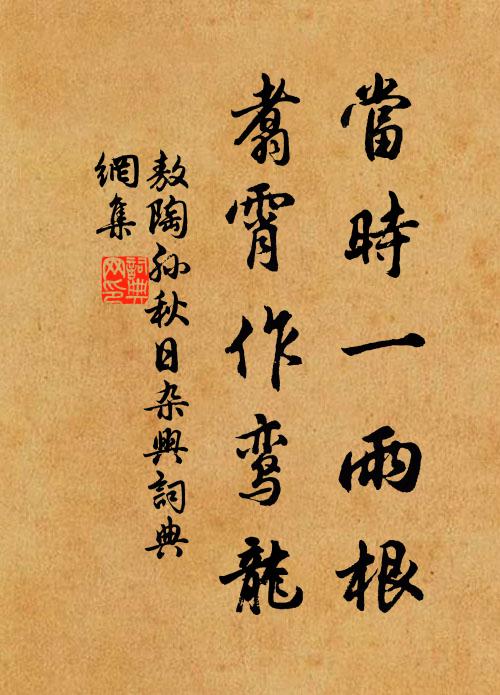 當時一兩根
翥霄作鸾龍
敖陶孙秋日杂興詞典
網集
詞典
网印